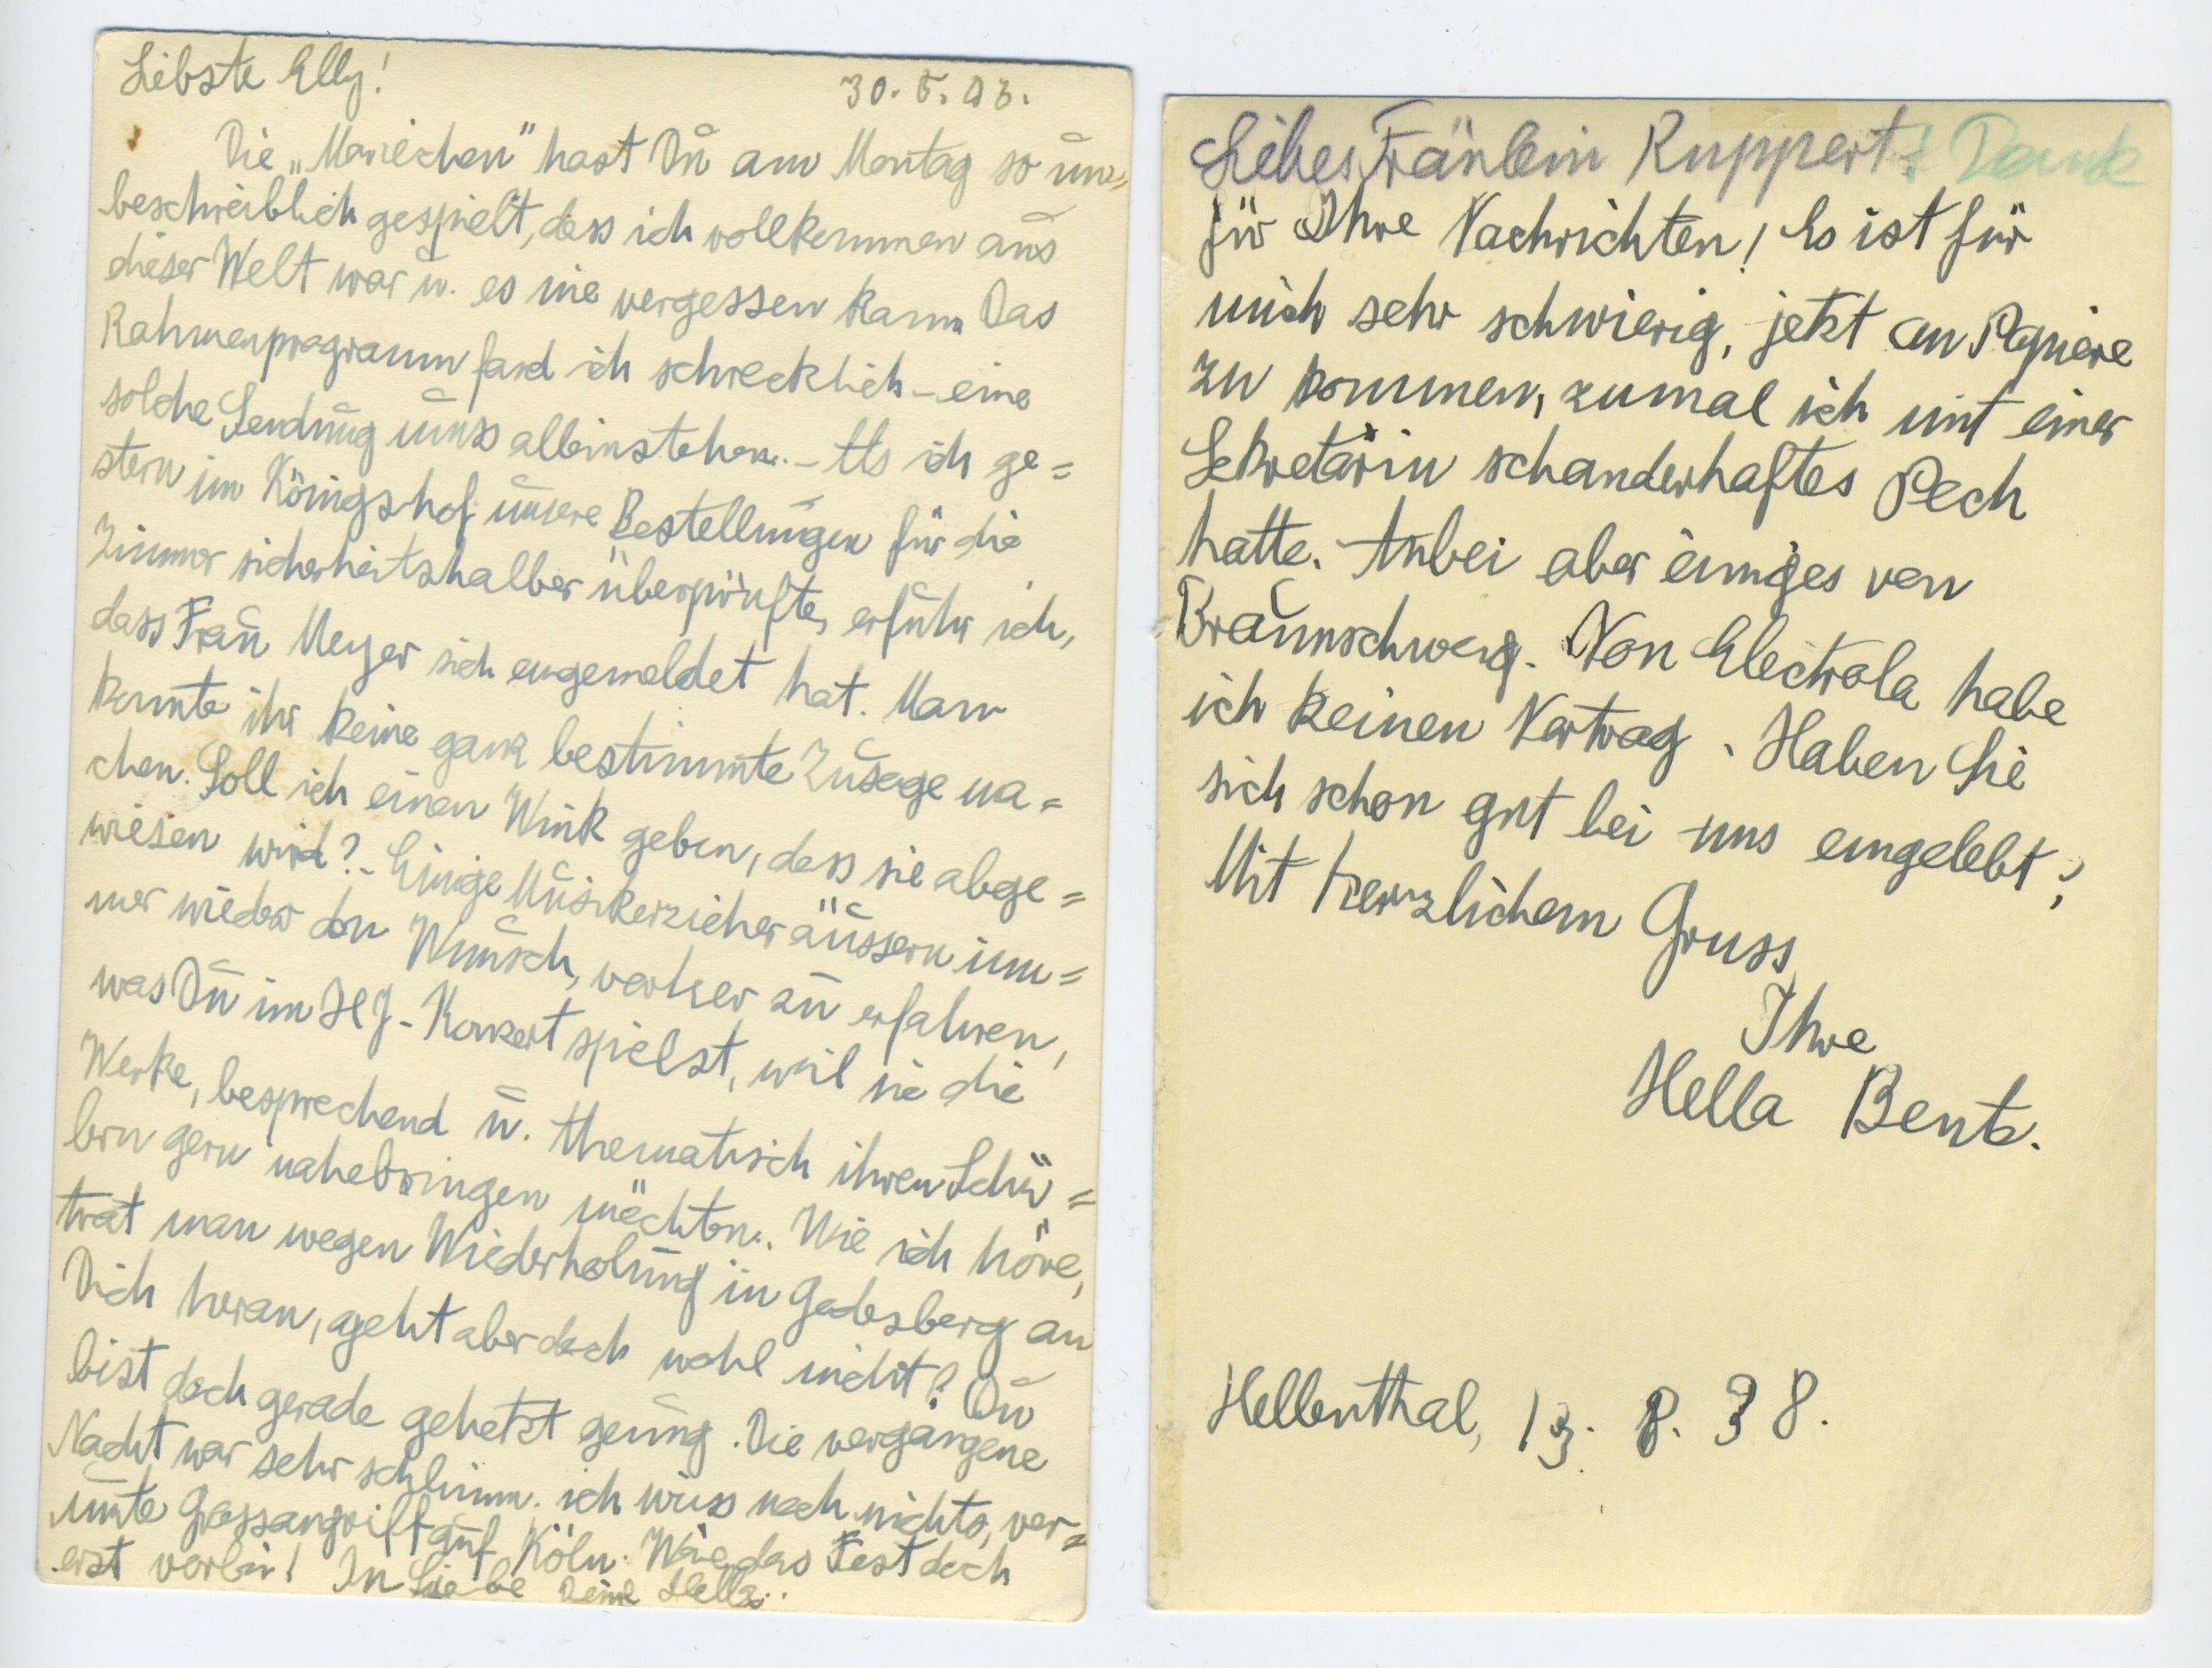 Liebste Elly!
30. 5. 43.
Die „Mariechen" hast Du am Montag so un=
beschreiblich gespielt, dass ich vollkommen aus
dieser Welt war u. es nie vergessen kann Das
Rahmenprogramm fand ich schrecklich – eine
solche Sendung muss alleinstehen. – Als ich ge=
stern im Königshof unsere Bestellungen für die
Zimmer sicherheitshalber überprüfte, erfuhr ich,
dass Frau Meyer sich angemeldet hat. Man
konnte ihr keine ganz bestimmte Zusage ma=
chen. Soll ich einen Wink geben, dass sie abge=
wiesen wird? – Einige Musikerzieher äussern im=
mer wieder den Wunsch, vorher zu erfahren,
was Du im HJ-Konzert spielst, weil sie die
Werke, besprechend u. thematisch ihren Schü=
lern gern nahebringen möchten. Wie ich höre,
trat man wegen Wiederholung in Godesberg an
Dich heran, geht aber doch wohl nicht? Du
bist doch gerade gehetzt genug. Die vergangene
Nacht war sehr schlimm. ich weiss noch nichts, ver=
mute Grossangriff auf Köln. Wäre das Fest doch
erst vorbei! In Liebe Deine Hella.
Liebes Fräulein Ruppert! Dank
für Ihre Nachrichten! Es ist für
mich sehr schwierig, jetzt an Papiere
zu kommen, zumal ich mit einer
Sekretärin schauderhaftes Pech
hatte. Anbei aber einiges von
Braunschweig. Von Electrola habe
ich keinen Vertrag. Haben Sie
sich schon gut bei uns eingelebt?
Mit herzlichem Gruss
Ihre
Hella Bent.
Hellenthal, 13. 8. 38.